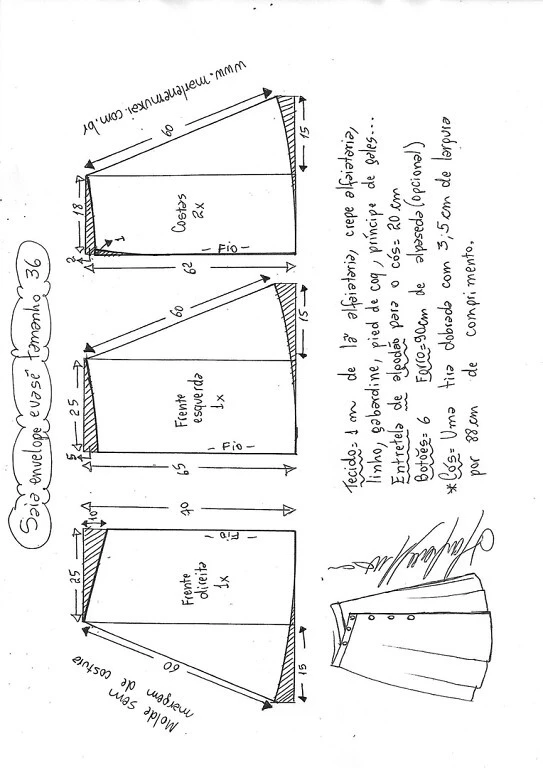 Saia envelope evasê tamanho 36
www.marlenemukai.com.br
Molde sem
margem de costura
25
10
70
60
15
Frente
direita
1x
Fio
25
5
65
60
15
Frente
esquerda
1x
Fio
18
2
1
62
60
15
Costas
2x
Fio
Tecido= 1 m de lã alfaiataria, crepe alfaiataria,
linho, gabardine, pied de coq, príncipe de gales...
Entretela de algodão para o cós= 20 cm
Botões= 6 Forro=90cm de alpaseda (opcional)
*Cós= Uma tira dobrada com 3,5 cm de largura
por 88 cm de comprimento.